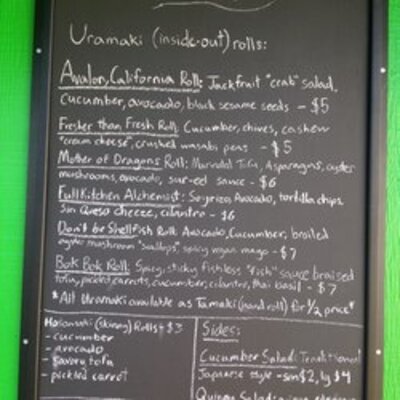 Uramaki (inside-out) rolls:
Avalon, California Roll: Jackfruit "crab" salad,
cucumber, avocado, black sesame seeds - $5
Fresher than Fresh Roll: Cucumber, chives, cashew
"cream cheese", crushed wasabi peas - $5
Mother of Dragons Roll: Tofu, Asparagus, oyster
mushrooms, avocado, sauce - $6
Full Kitchen Alchemist: Soyrizo, Avocado, tortilla chips,
Sin Queso cheeze, cilantro - $6
Don't be Shellfish Roll: Avocado, Cucumber, broiled
mushroom "scallops", spicy vegan mayo - $7
Bok Bok Roll: Spicy, sticky fishless "fish" sauce braised
tofu, pickled carrots, cucumber, cilantro, thai basil - $7
*All Uramaki available as Temaki (hand roll) for 1/2 price*
(skinny) Rolls: $3
- cucumber
- avocado
- savory tofu
- pickled carrot
Sides:
Cucumber Salad: Traditional
Japanese style - sm $2, lg $4
Salad: